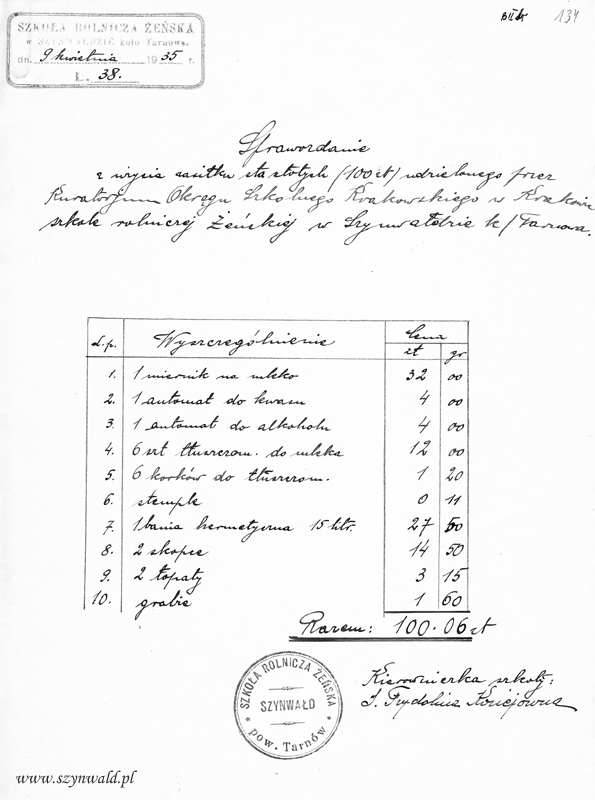 BIIb 134
SZKOŁA ROLNICZA ŻEŃSKA
w SZYNWAŁDZIE koło Tarnowa.
dn. 9 kwietnia 1935 r.
L. 38.
Sprawozdanie
z użycia zasiłku sta złotych (100 zł) udzielonego przez
Kuratorjum Okręgu Szkolnego Krakowskiego w Krakowie
szkole rolniczej Żeńskiej w Szynwałdzie k/Tarnowa.
L.p. Wyszczególnienie Cena
zł gr
1. 1 miernik na mleko 32 00
2. 1 automat do kwasu 4 00
3. 1 automat do alkoholu 4 00
4. 6 szt tłuszczom. do mleka 12 00
5. 6 korków do tłuszczom. 1 20
6. stemple 0 11
7. 1 bania hermetyczna 15 litr. 27 50
8. 2 skopce 14 50
9. 2 łopaty 3 15
10. grabie 1 60
Razem: 100.06 zł
SZKOŁA ROLNICZA ŻEŃSKA
SZYNWAŁD
* pow. Tarnów *
Kierowniczka szkoły:
www.szynwald.pl